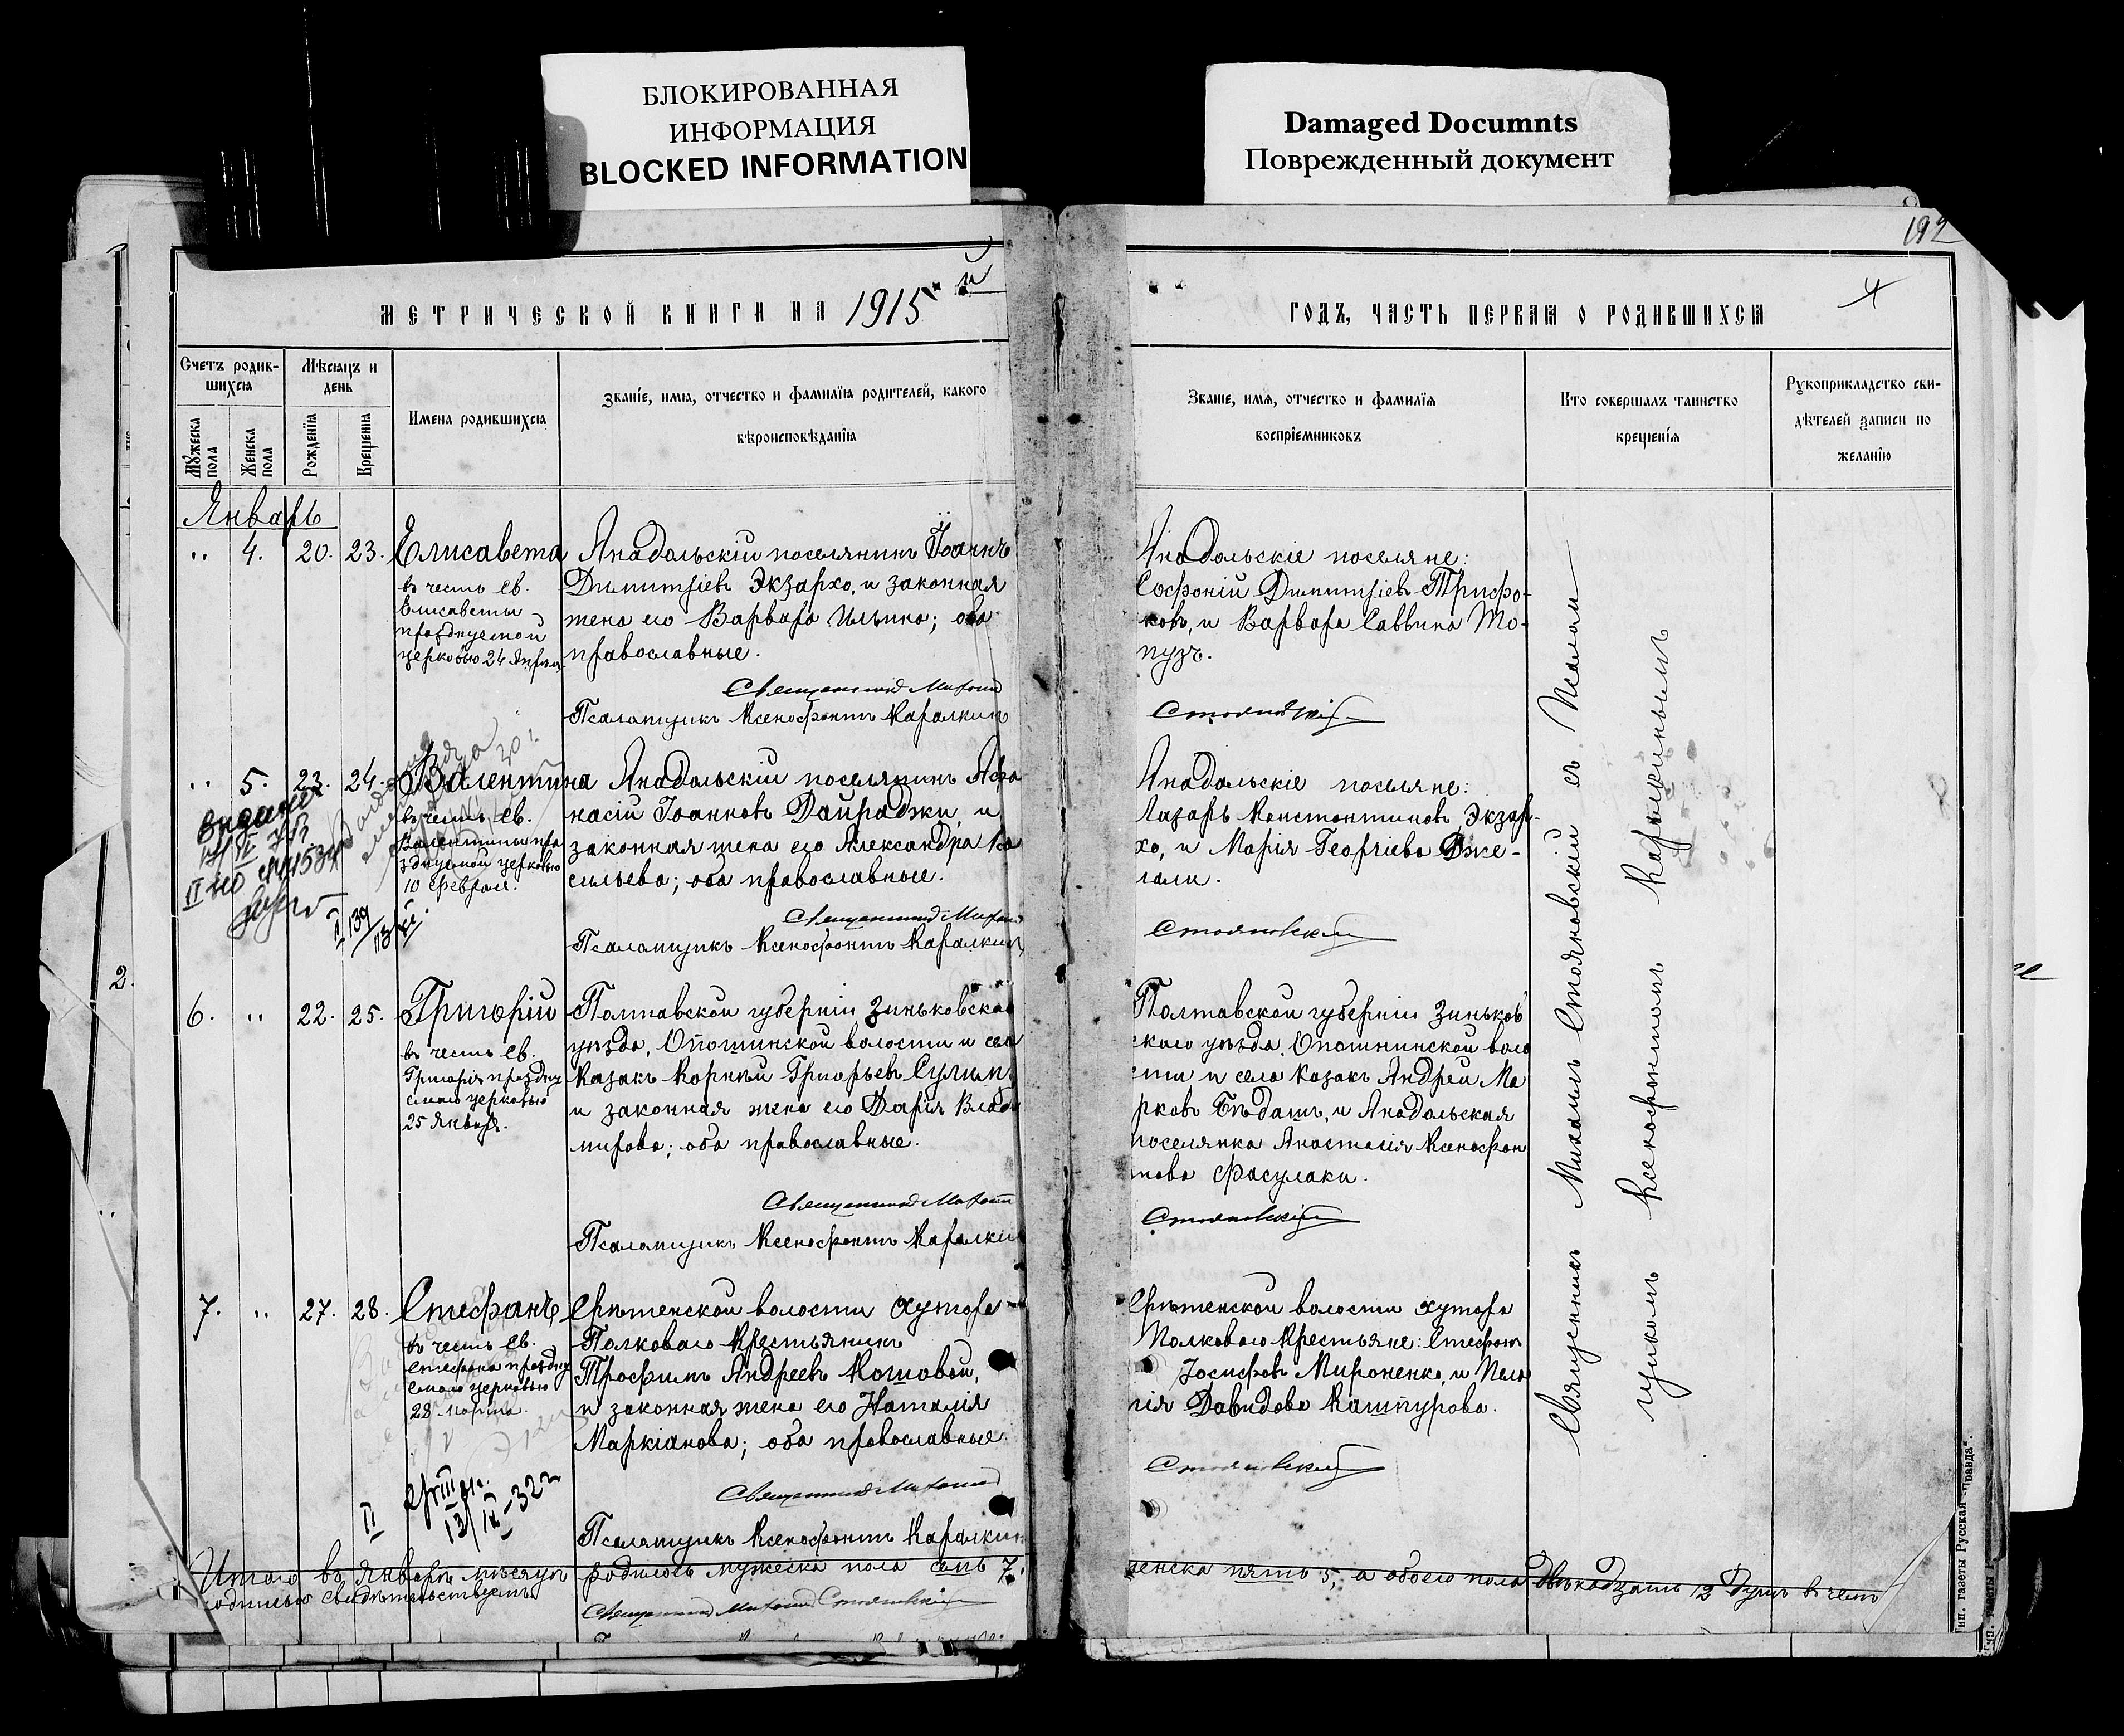 БЛОКИРОВАННАЯ
ИНФОРМАЦИЯ
BLOCKED INFORMATION
Damaged Documnts
Поврежденный документ
192
4
МЕТРИЧЕСКОЙ КНИГИ НА 1915й
ГОДЪ, ЧАСТЬ ПЕРВАЯ О РОДИВШИХСЯ
Счетъ родив-
шихся
Мѣсяцъ и
день
Мужеска
пола
Женска
пола
Рожденїя
Крещенїя
Имена родившихся
Званїе, имя, отчество и фамилїя родителей, какого
вѣроисповѣданїя
Званїе, имя, отчество и фамилїя
воспрїемниковъ
Кто совершалъ таинство
крещенїя
Рукоприкладство сви-
дѣтелей записи по
желанїю
Январь
" 4. 20. 23. Елисавета
въ честь св.
Елисаветы
празднуемой
церковью 24 Апрѣля
Анадольскій поселянинъ Іоаннъ
Димитріевъ Экзархо, и законная
жена его Варвара Ильина; оба
православные.
Священникъ Михаилъ
Псаломщикъ Ксенофонтъ Каралкинъ
Анадольскіе поселяне:
Софроній Димитріевъ Трифо-
новъ, и Варвара Саввина То-
пузъ.
Стояновскій
" 5. 23. 24. Валентина
въ честь св.
Валентины пра
зднуемой церковью
10 Февраля.
Анадольскій поселянинъ Афа
насій Іоанновъ Дайраджи, и
законная жена его Александра Ва
сильева; оба православные.
Священникъ Михаилъ
Псаломщикъ Ксенофонтъ Каралкинъ
Анадольскіе поселяне:
Лазарь Константиновъ Экзар-
хо, и Марія Георгіева Дже-
лали.
Стояновскій
6. " 22. 25. Григорій
въ честь св.
Григорія праздну
емаго церковью
25 Января.
Полтавской губерніи Зиньковскаго
уѣзда, Опошнинской волости и села
Казакъ Корнѣй Григорьевъ Сулима
и законная жена его Дарія Влади
мирова; оба православные.
Священникъ Михаилъ
Псаломщикъ Ксенофонтъ Каралкинъ
Полтавской губерніи Зиньков
скаго уѣзда, Опошнинской воло
сти и села Казакъ Андрей Ма
рковъ Бѣдашъ, и Анадольская
поселянка Анастасія Ксенофон
това Фасулаки.
Стояновскій
7. " 27. 28. Стефанъ
въ честь св.
Стефана праздну
емаго церковью
28 Марта.
Срѣтенской волости хутора
Полковаго Крестьянинъ
Трофимъ Андреевъ Кошовой,
и законная жена его Наталія
Маркіанова; оба православные.
Священникъ Михаилъ
Псаломщикъ Ксенофонтъ Каралкинъ
Срѣтенской волости хутора
Полковаго Крестьяне: Стефанъ
Іосифовъ Мироненко, и Пела
гія Давидова Кашпурова.
Стояновскій
Священникъ Михаилъ Стояновскій съ Псалом
щикомъ Ксенофонтомъ Каралкинымъ
Итого въ Январѣ мѣсяцѣ родилось мужеска пола семь 7.
женска пять 5, а обоего пола двѣнадцать 12 душъ въ чемъ
подписью свидѣтельствуемъ
Священникъ Михаилъ Стояновскій
Тип. газеты Русская „Правда“.